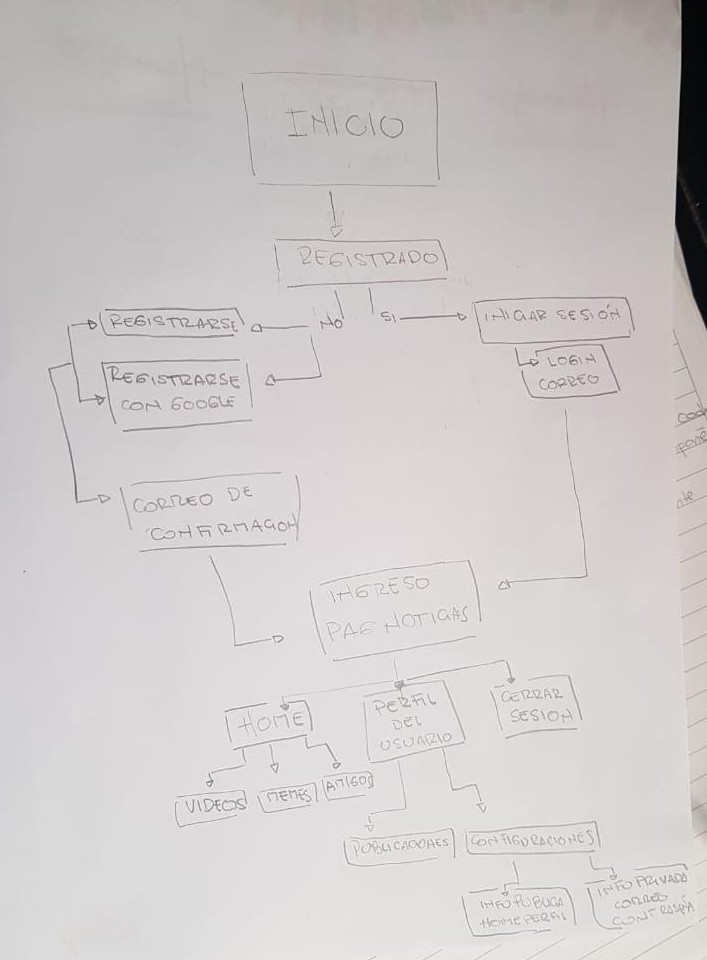 INICIO
REGISTRADO
NO
SI
REGISTRARSE
INICIAR SESIÓN
LOGIN
CORREO
REGISTRARSE
CON GOOGLE
CORREO DE
CONFIRMACION
INGRESO
PAG NOTICIAS
HOME
PERFIL
DEL
USUARIO
CERRAR
SESION
VIDEOS
MEMES
AMIGOS
PUBLICACIONES
CONFIGURACIONES
INFO PUBLICA
HOME PERFIL
INFO PRIVADA
CORREO